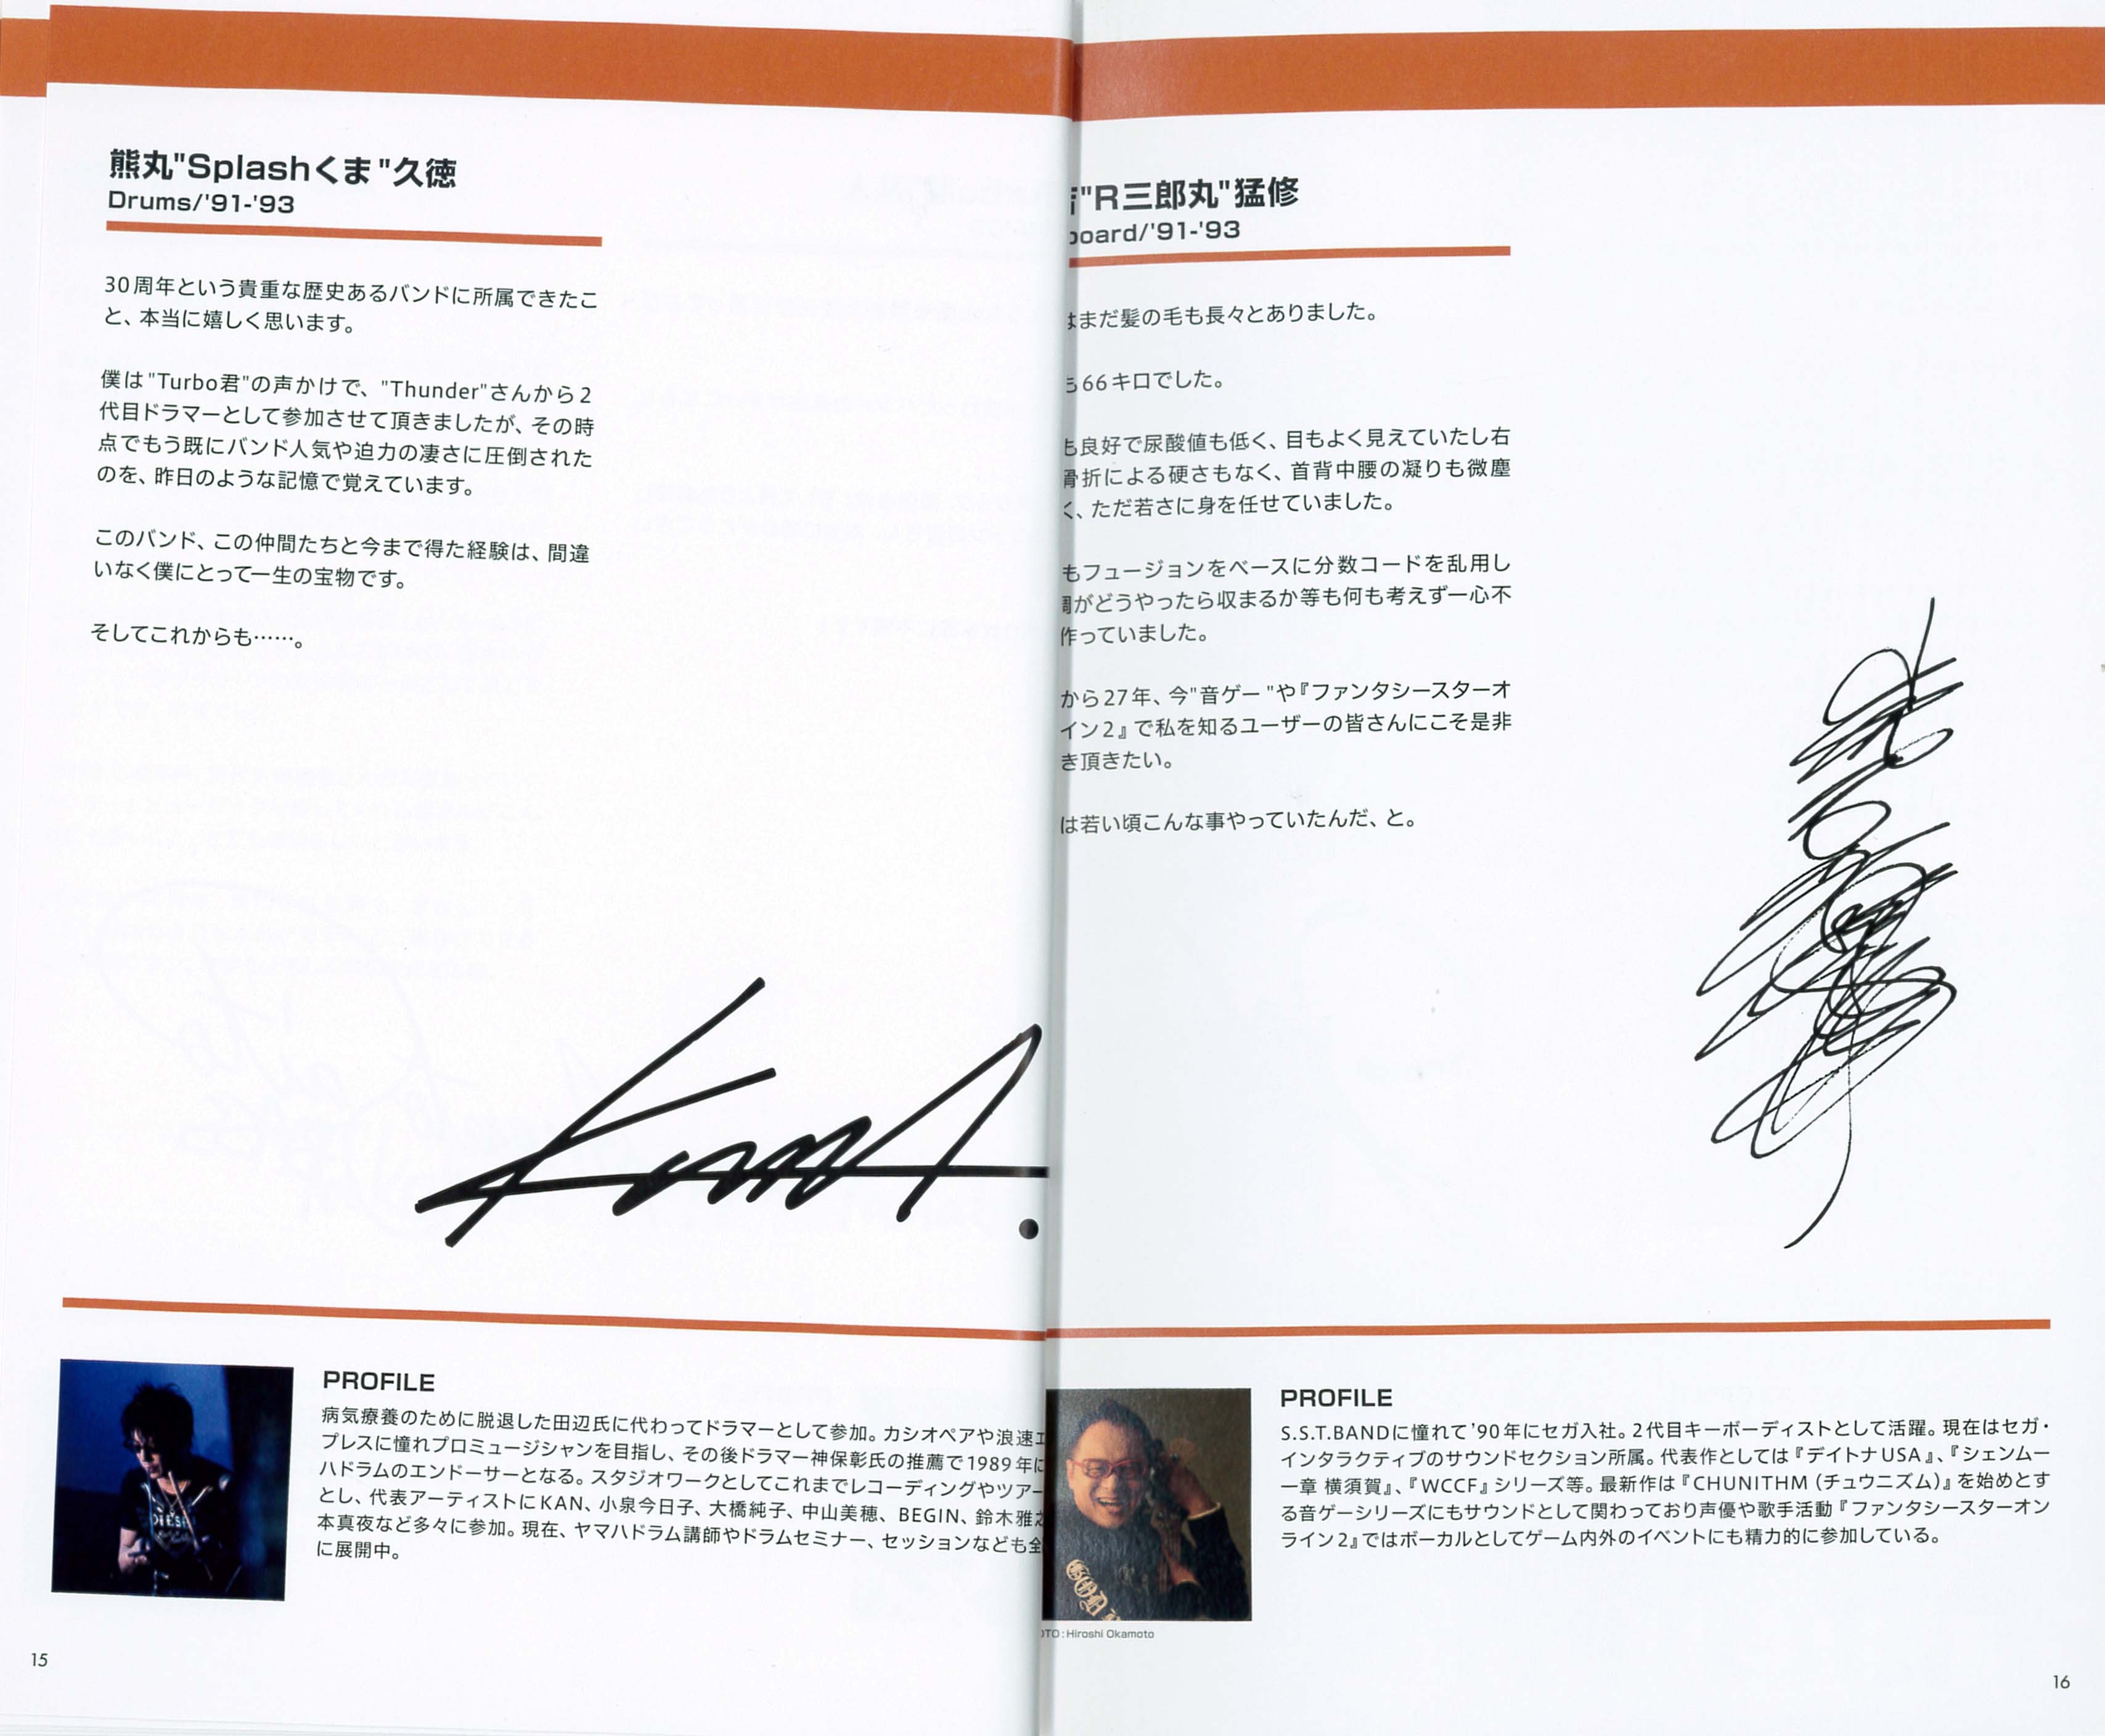 熊丸"Splashくま"久徳
Drums/'91-'93
30周年という貴重な歴史あるバンドに所属できたこ
と、本当に嬉しく思います。
僕は"Turbo君"の声かけで、"Thunder"さんから2
代目ドラマーとして参加させて頂きましたが、その時
点でもう既にバンド人気や迫力の凄さに圧倒された
のを、昨日のような記憶で覚えています。
このバンド、この仲間たちと今まで得た経験は、間違
いなく僕にとって一生の宝物です。
そしてこれからも……。
PROFILE
病気療養のために脱退した田辺氏に代わってドラマーとして参加。カシオペアや浪速エ
プレスに憧れプロミュージシャンを目指し、その後ドラマー神保彰氏の推薦で1989年に
ハドラムのエンドーサーとなる。スタジオワークとしてこれまでレコーディングやツアー
とし、代表アーティストにKAN、小泉今日子、大橋純子、中山美穂、BEGIN、鈴木雅
本真夜など多々に参加。現在、ヤマハドラム講師やドラムセミナー、セッションなども全
に展開中。
15
"R三郎丸"猛修
board/'91-'93
はまだ髪の毛も長々とありました。
66キロでした。
も良好で尿酸値も低く、目もよく見えていたし右
骨折による硬さもなく、首背中腰の凝りも微塵
く、ただ若さに身を任せていました。
もフュージョンをベースに分数コードを乱用し
調がどうやったら収まるか等も何も考えず一心不
作っていました。
から27年、今"音ゲー"や『ファンタシースターオ
イン2』で私を知るユーザーの皆さんにこそ是非
き頂きたい。
は若い頃こんな事やっていたんだ、と。
PROFILE
S.S.T.BANDに憧れて'90年にセガ入社。2代目キーボーディストとして活躍。現在はセガ・
インタラクティブのサウンドセクション所属。代表作としては『デイトナUSA』、『シェンムー
一章 横須賀』、『WCCF』シリーズ等。最新作は『CHUNITHM（チュウニズム）』を始めとす
る音ゲーシリーズにもサウンドとして関わっており声優や歌手活動『ファンタシースターオン
ライン2』ではボーカルとしてゲーム内外のイベントにも精力的に参加している。
OTO：Hiroshi Okamoto
16